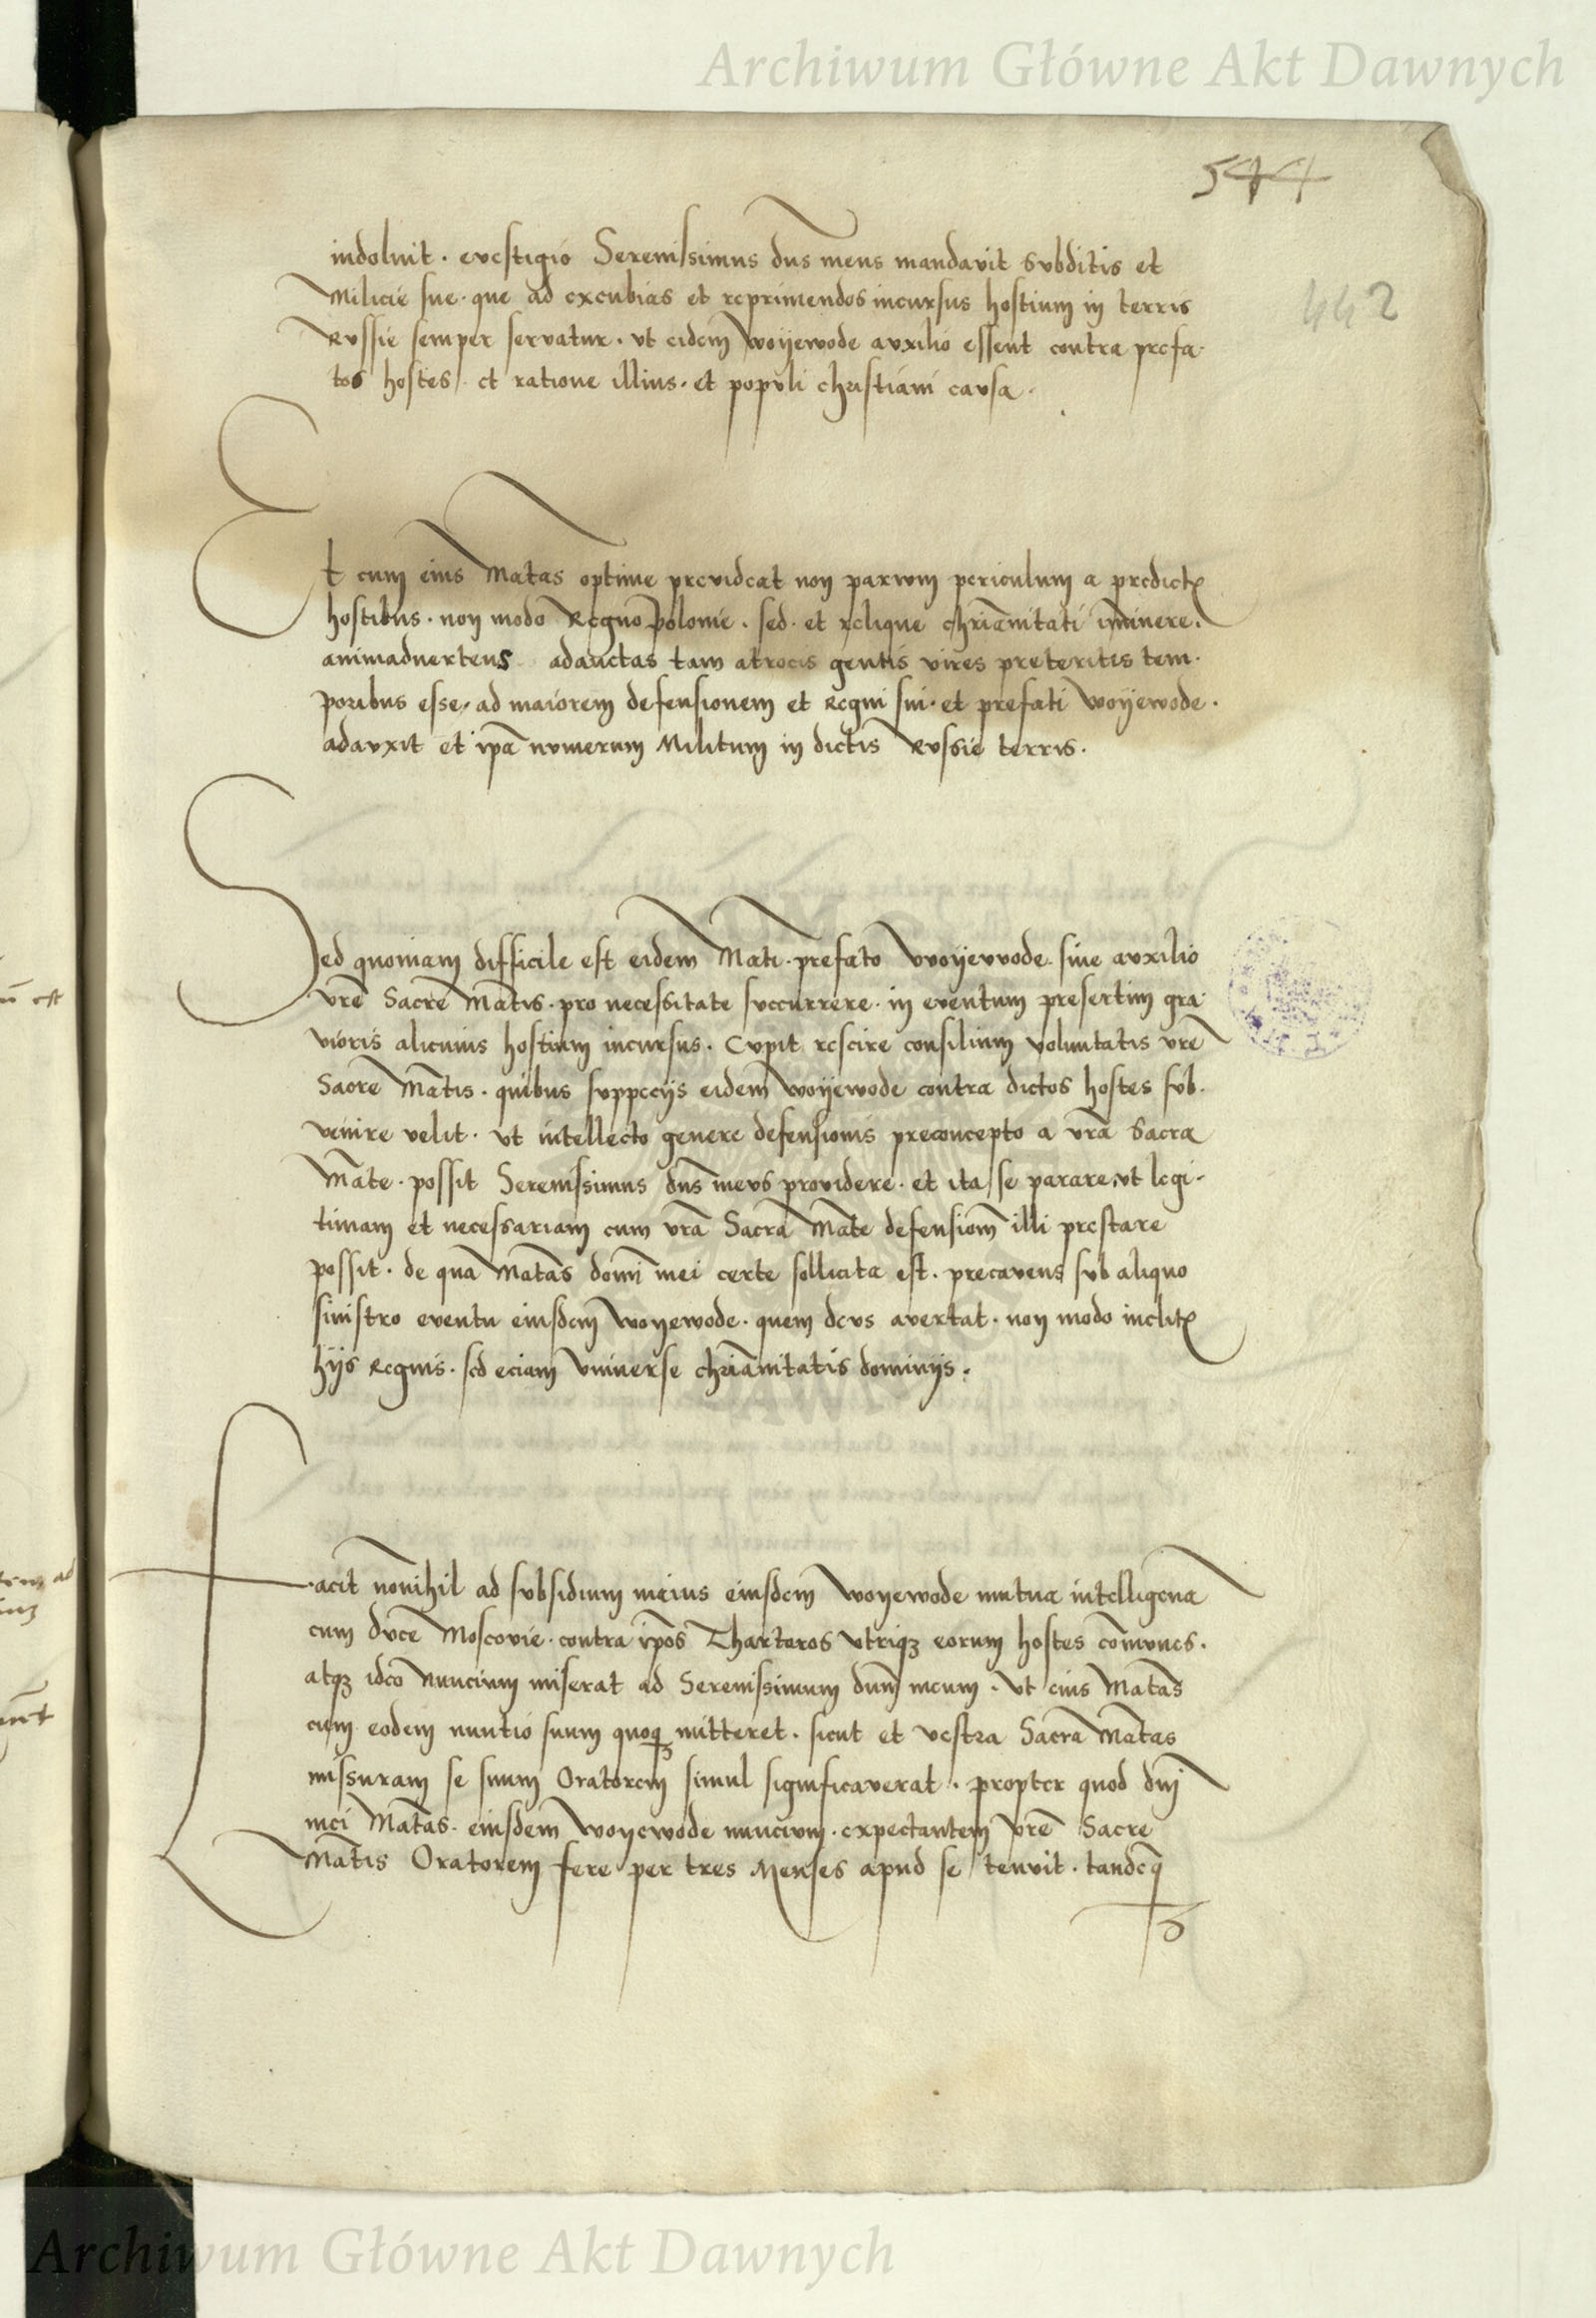 Archiwum Główne Akt Dawnych
544
442
indoluit. evestigio Serenissimus dns meus mandavit Subditis et
Milicie sue. que ad excubias et reprimendos incursus hostium in terris
Russie semper servatur. ut eidem Woyewode auxilio essent contra prefa-
tos hostes. et ratione illius. et populi christiani causa.
Et cum eius Matas optime prevideat non parvum periculum a predict
hostibus. non modo Regno Polonie. sed. et relique chrianitati iminere.
animadvertens adauctas tam atrocis gentis vires preteritis tem-
poribus esse, ad maiorem defensionem et Regni sui. et prefati Woyewode.
adauxit et ipa numerum Militum in dictis Russie terris.
Sed quoniam difficile est eidem Mati. prefato Woyewode. sine auxilio
vre Sacre Matis. pro necessitate succurrere. in eventum presertim gra-
vioris alicuius hostium incursus. Cupit rescire consilium voluntatis vre
Sacre Matis. quibus suppecijs eidem Woyewode contra dictos hostes sub-
venire velit. ut intellecto genere defensionis preconcepto a vra Sacra
Mate. possit Serenissimus dns meus providere. et ita se parare, ut legi-
timam et necessariam cum vra Sacra Mate defensiom illi prestare
possit. de qua Matas domi mei certe sollicita est. precavens sub aliquo
sinistro eventu eiusdem Woyewode. quem deus avertat. non modo inclit
hijs Regnis. sed eciam Universe chrianitatis dominijs.
Facit nonihil ad subsidium meius eiusdem Woyewode mutua intelligencia
cum duce Moscovie. contra ipos Thartaros utriqz eorum hostes comunes.
atqz ideo Nuncium miserat ad Serenissimum dum meum. Ut eius Matas
cum eodem nuntio suum quoqz mitteret. sicut et vestra Sacra Matas
missuram se suum Oratorem simul significaverat. propter quod dni
mei Matas. eiusdem Woyewode nuncium. expectantem vre Sacre
Matis Oratorem fere per tres Menses apud se tenuit. tandeq
Archiwum Główne Akt Dawnych